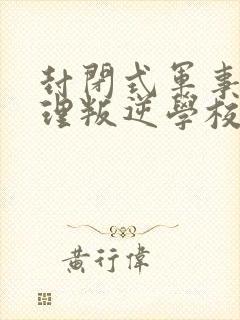 封閉式軍事
理叛逆學校
黃行偉